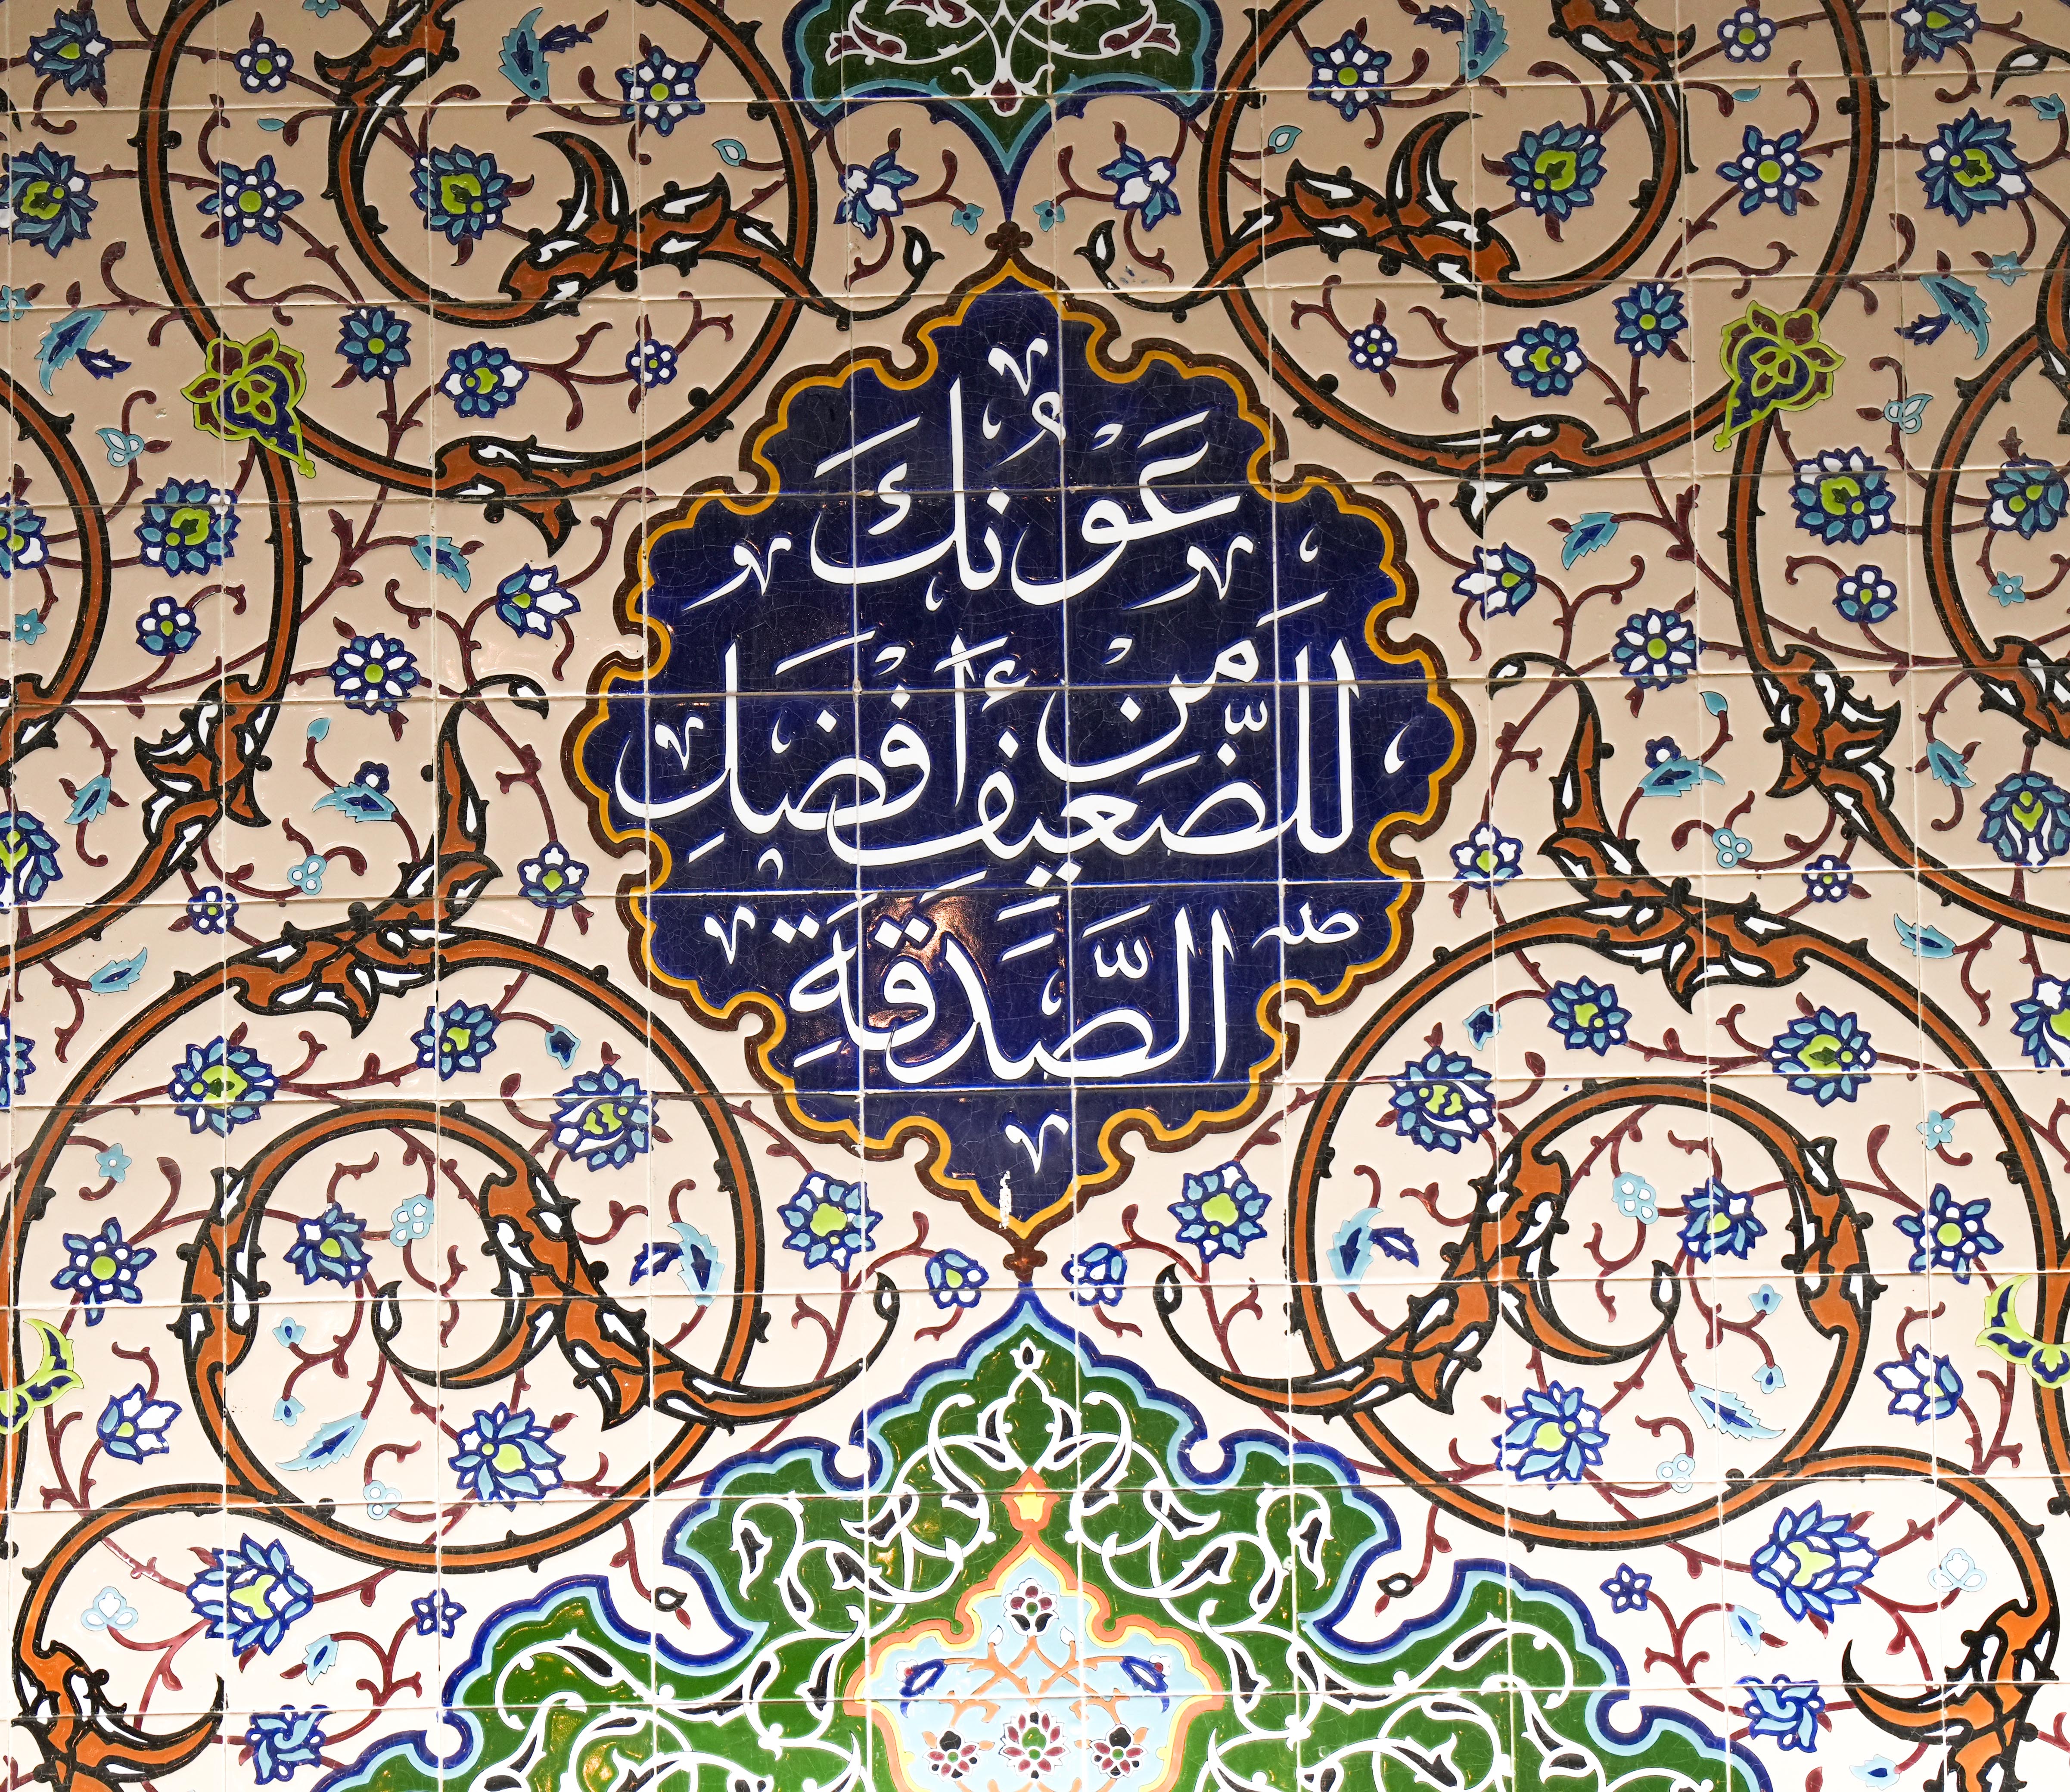 عَوْنُكَ
لِلضَّعيفِ مِنْ أَفْضَلِ
الصَّدَقَةِ